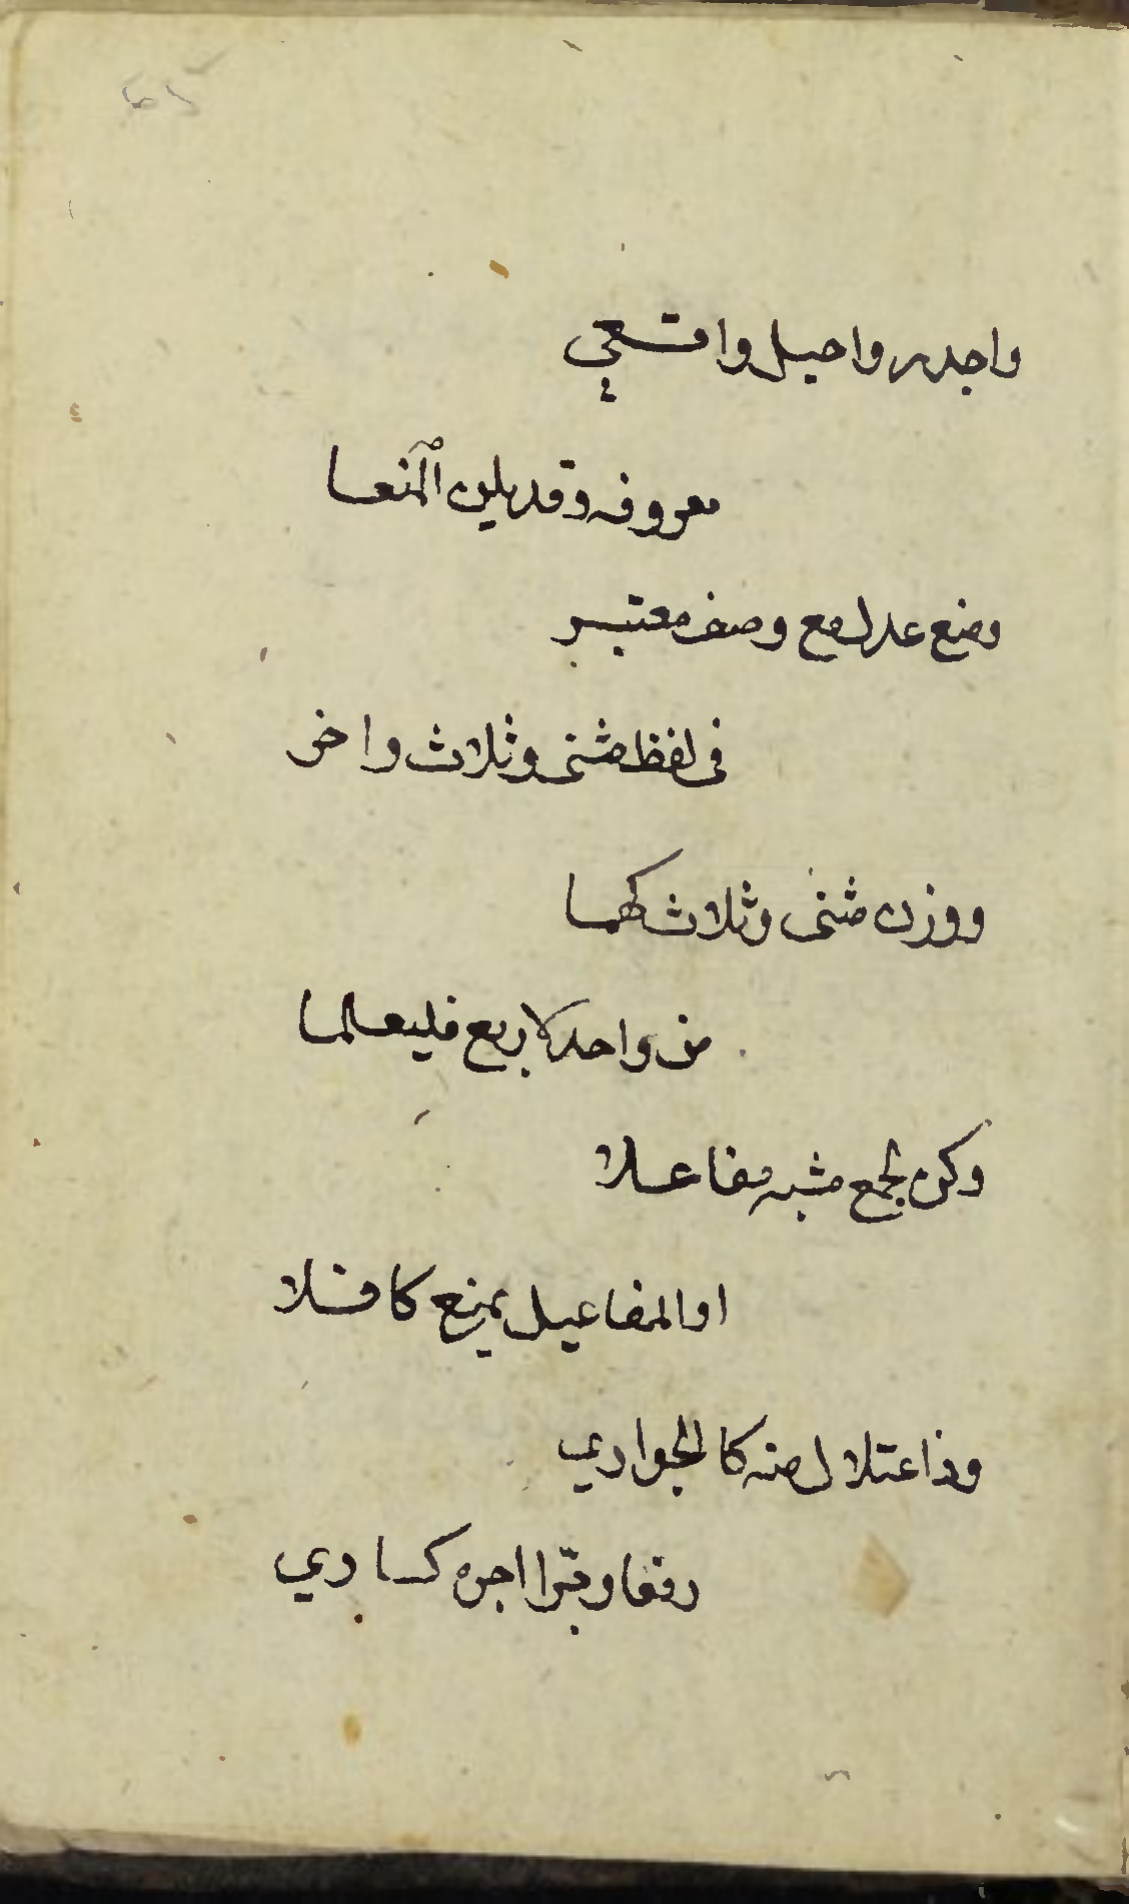 واجدل واخيل وافعي
مصروفة وقد ينلن المنعا
ومنع عدل مع وصف معتبر
في لفظ مثنى وثلاث واخر
ووزن مثنى وثلاث كهما
من واحد لاربع فليعلما
وكن لجمع مشبه مفاعلا
او المفاعيل بمنع كافلا
وذا اعتلال منه كالجواري
رفعا وجرا اجره كساري